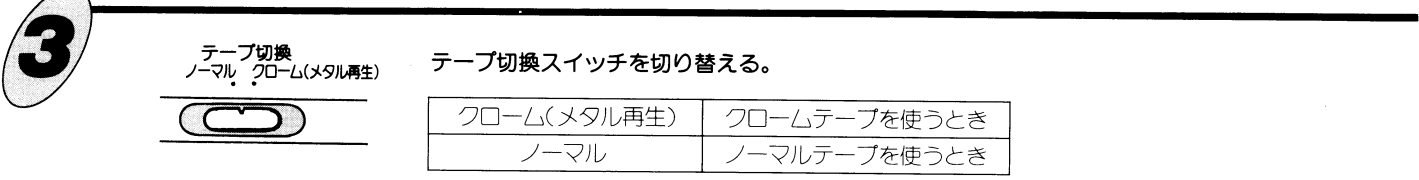 3
テープ切換
ノーマル クローム(メタル再生)
テープ切換スイッチを切り替える。
クローム(メタル再生) クロームテープを使うとき
ノーマル ノーマルテープを使うとき